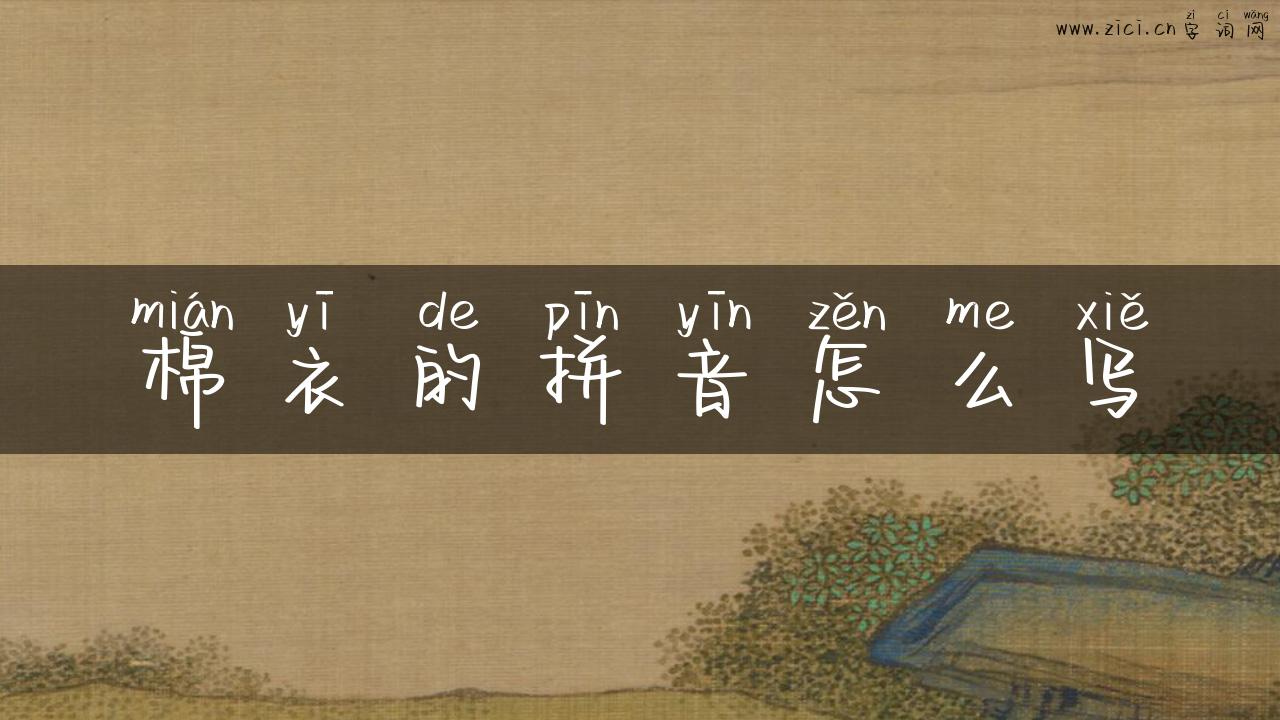 zì cí wǎng
www.zici.cn 字词网
mián yī de pīn yīn zěn me xiě
棉衣的拼音怎么写